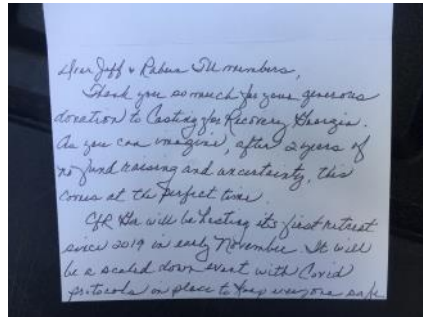 Dear Jeff & Rabun TU members,
Thank you so much for your generous
donation to Casting for Recovery Georgia.
As you can imagine, after 2 years of
no fund raising and uncertainty, this
comes at the perfect time.
CfR Ga will be hosting its first retreat
since 2019 in early November. It will
be a scaled down event with Covid
protocols in place to keep everyone safe